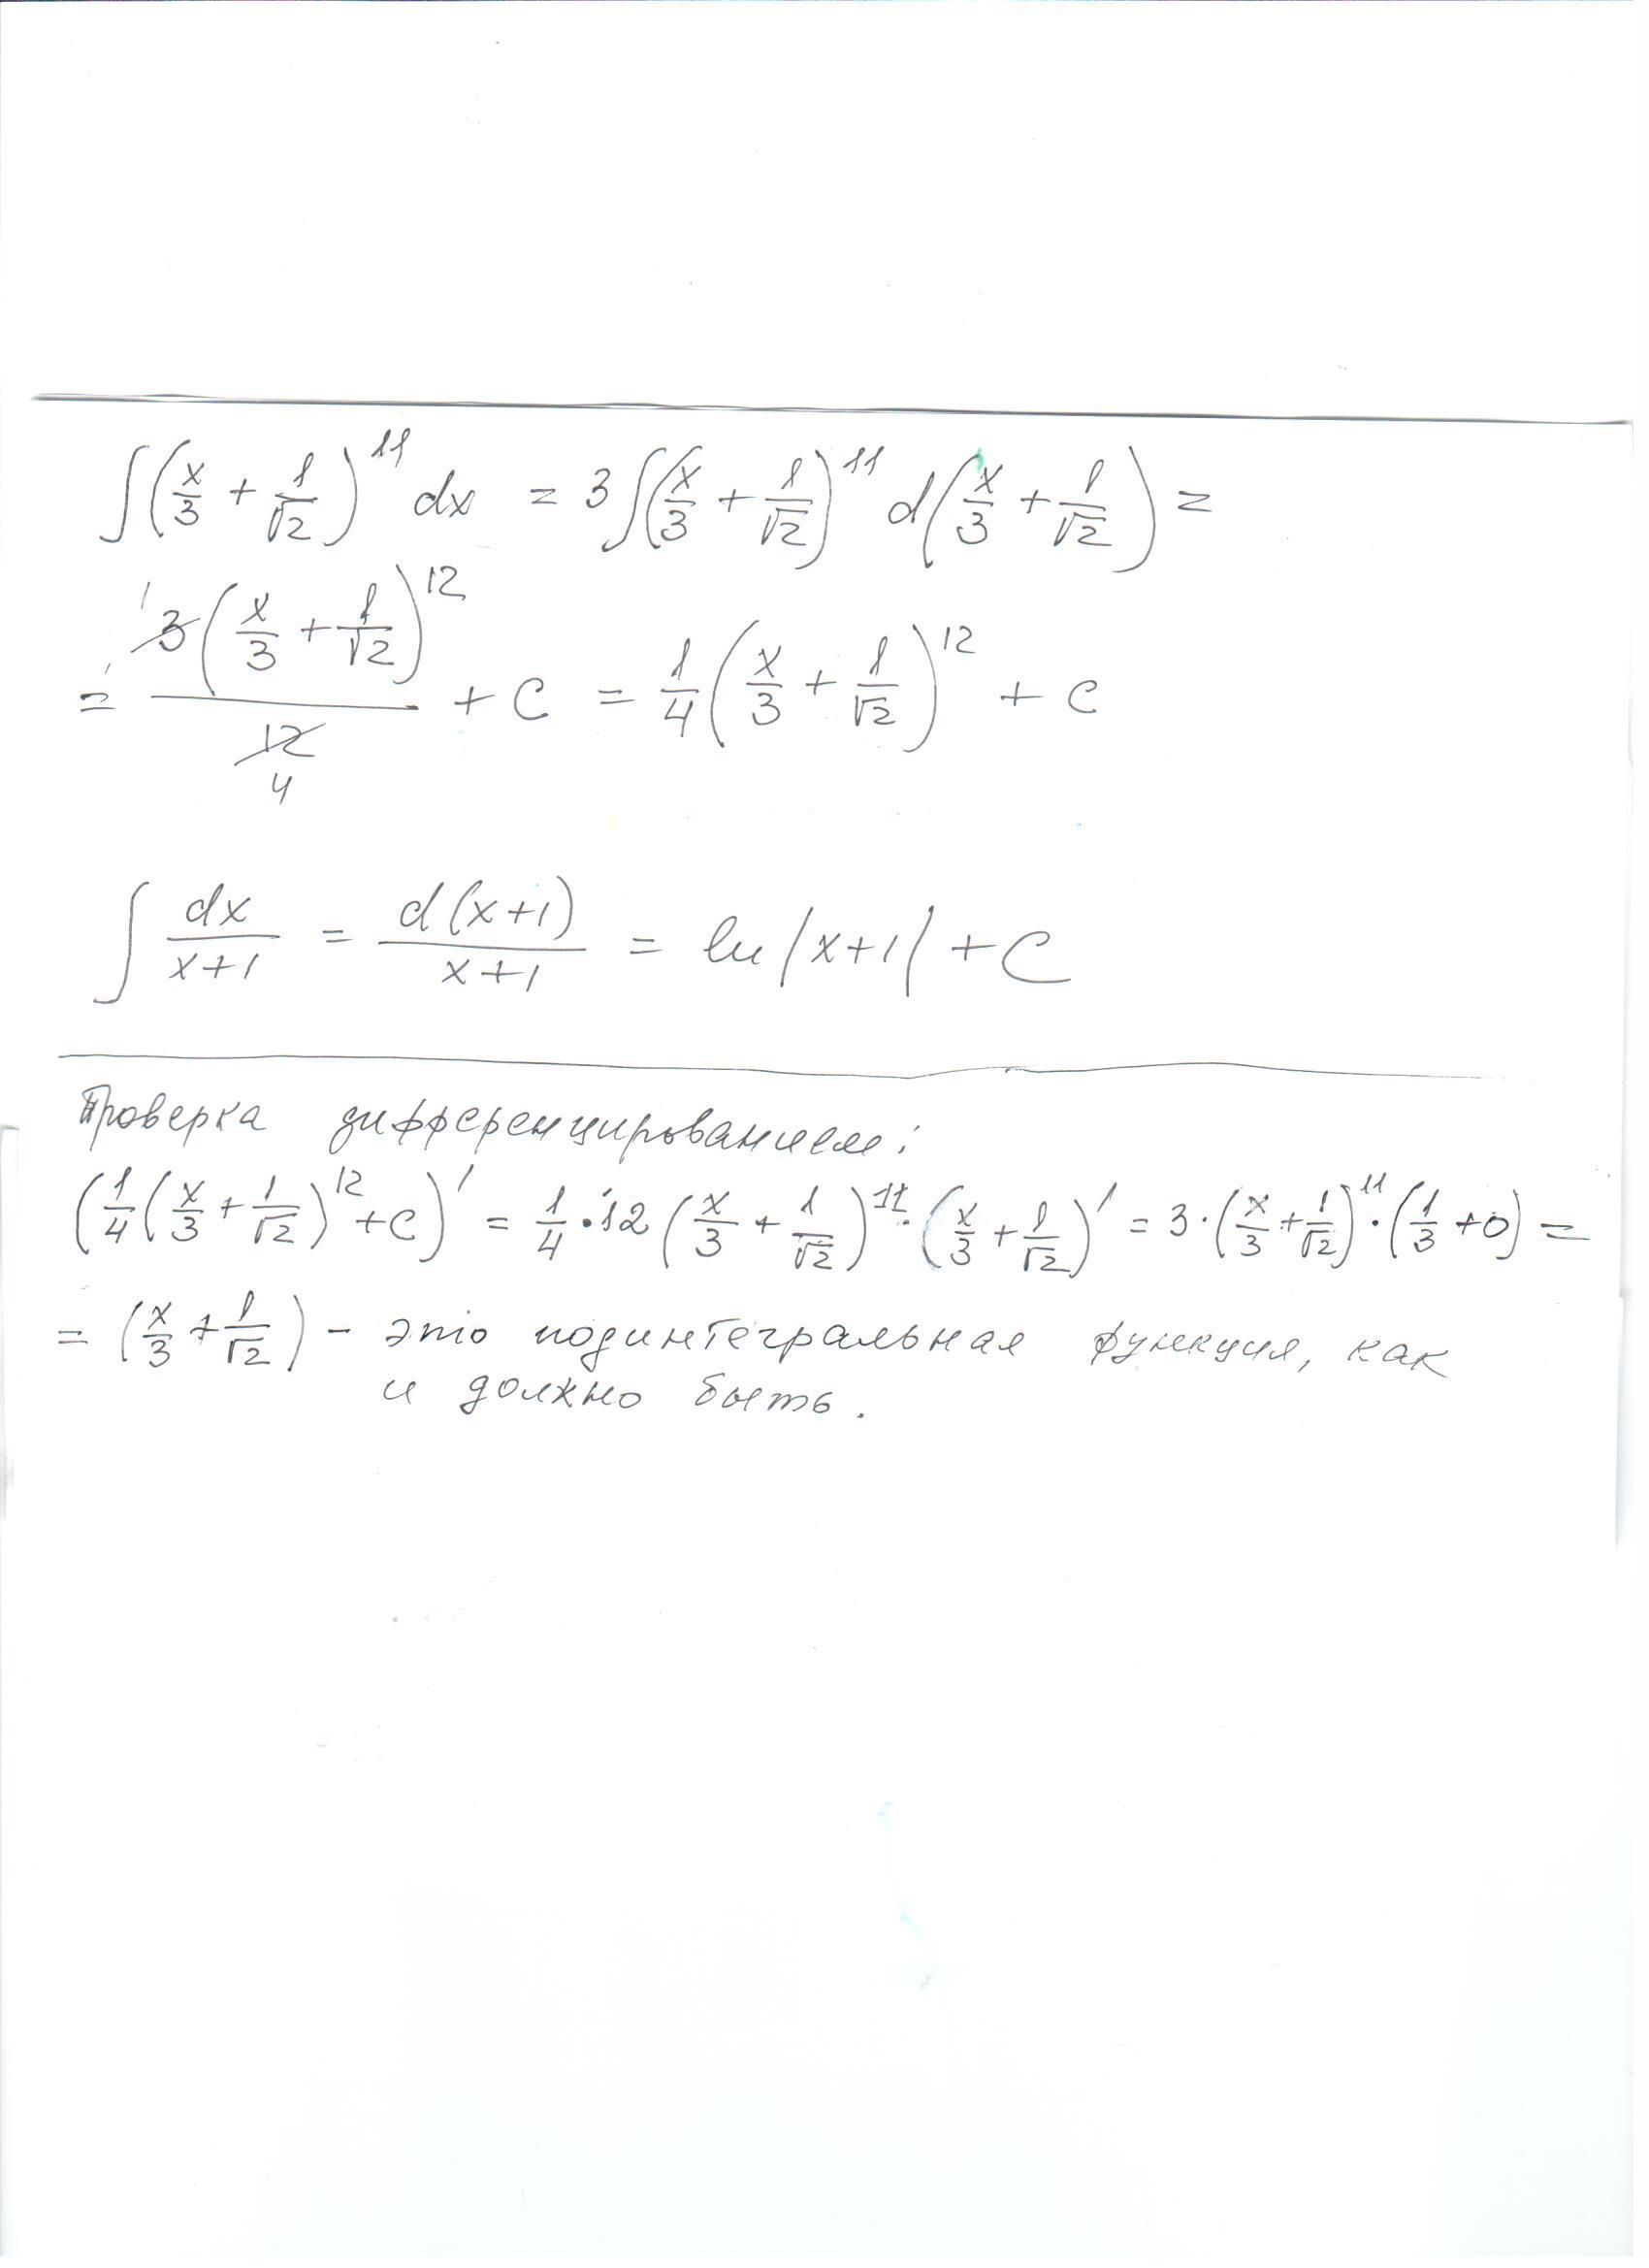 ∫(x/3 + 1/√2)^11 dx = 3∫(x/3 + 1/√2)^11 d(x/3 + 1/√2) =
= 3(x/3 + 1/√2)^12 / 12 + C = 1/4 (x/3 + 1/√2)^12 + C
1
4
∫ dx/(x+1) = d(x+1)/(x+1) = ln|x+1| + C
Проверка дифференцированием:
(1/4(x/3 + 1/√2)^12 + C)' = 1/4 · 12 (x/3 + 1/√2)^11 · (x/3 + 1/√2)' = 3 · (x/3 + 1/√2)^11 · (1/3 + 0) =
= (x/3 + 1/√2) - это подинтегральная функция, как
и должно быть.